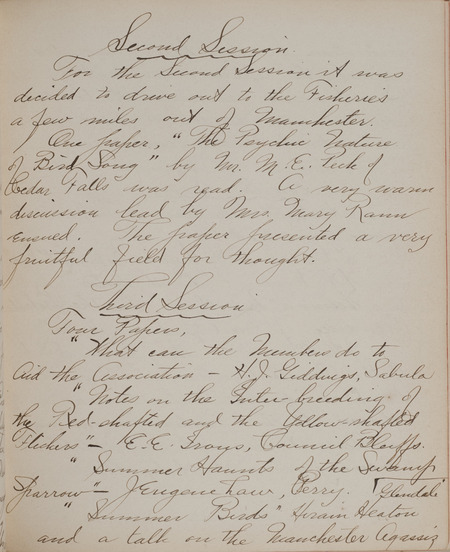 Second Session.
For the Second Session it was
decided to drive out to the Fisheries
a few miles out of Manchester.
One paper, "The Psychic Nature
of Bird Song" by Mr. M. E. Peck of
Cedar Falls was read. A very warm
discussion lead by Mrs. Mary Rann
ensued. The paper presented a very
fruitful field for thought.
Third Session
Four Papers,
"What can the Members do to
Aid the Association – H. J. Giddings, Sabula
"Notes on the Inter-breeding of
the Red-shafted and the Yellow-shafted
Flickers" – E. E. Council Bluffs.
"Summer Haunts of the Swamp
Sparrow" – J Eugene Law, Perry.
Glendale
"Summer Birds" Hiram Heaton
and a talk on the Manchester Agassiz